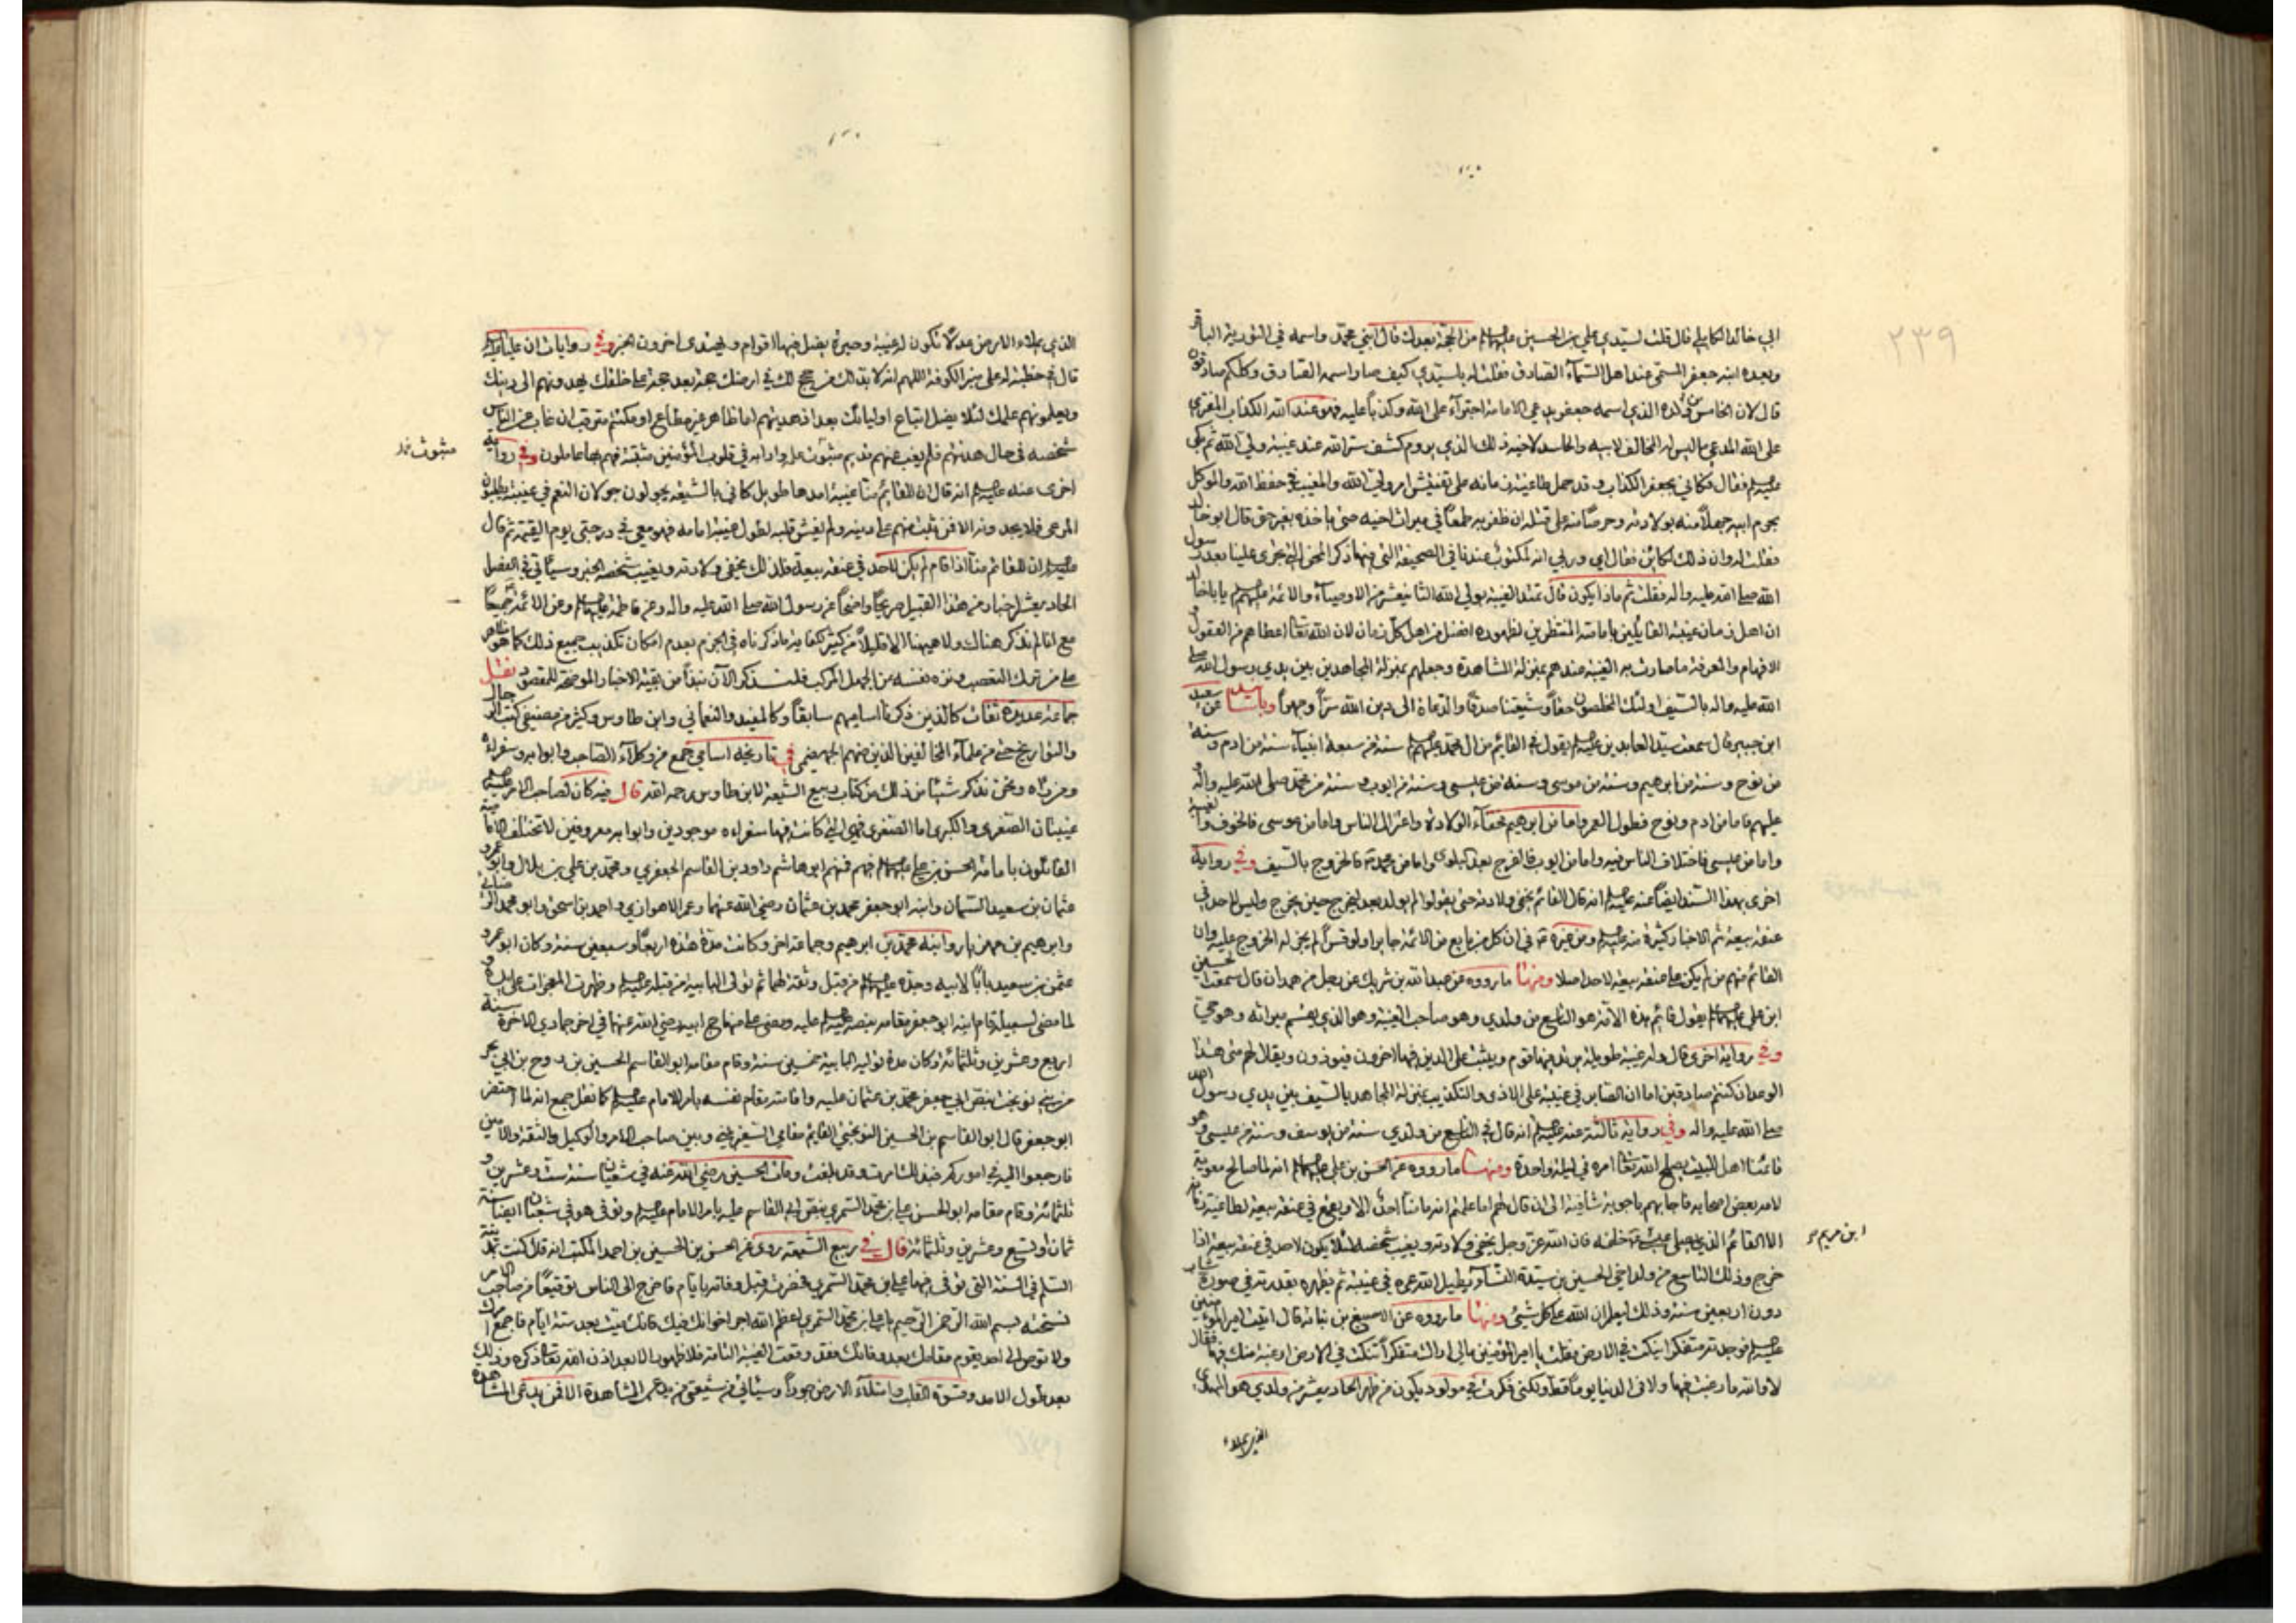 ٢٣٩
ابي خالد الكابلي قال قلت لسيدي علي بن الحسين عليهما السلام من الحجة بعدك قال ابني محمد واسمه في التورية الباقر
وبعده ابنه جعفر المسمى عند اهل السماء الصادق فقلت له يا سيدي كيف صار اسمه الصادق وكلكم صادقون
قال لان الخامس من ولده الذي اسمه جعفر يدعي الامامة اجتراء على الله وكذبا عليه فهو عند الله الكذاب المفتري
على الله المدعي ما ليس له المخالف لابيه والحاسد لاخيه ذلك الذي يروم كشف ستر الله عند غيبة ولي الله ثم بكى
فقال فكاني بجعفر الكذاب وقد حمل طاغية زمانه على تفتيش امر ولي الله والمغيب في حفظ الله والموكل
بحرم ابيه جهلا منه بولادته وحرصا منه على قتله ان ظفر به طمعا في ميراث اخيه حتى ياخذه بغير حق قال ابو خالد
فقلت له وان ذلك لكائن فقال اي وربي انه لمكتوب عندنا في الصحيفة التي فيها ذكر المحن التي تجرى علينا بعد رسول
الله صلى الله عليه واله فقلت ثم ماذا يكون قال تمتد الغيبة بولي الله الثاني عشر من الاوصياء والائمة يا با خالد
ان اهل زمان غيبة القائلين بامامته المنتظرين لظهوره افضل من اهل كل زمان لان الله اعطاهم من العقول
الافهام والمعرفة ما صارت به الغيبة عندهم بمنزلة المشاهدة وجعلهم بمنزلة المجاهدين بين يدي رسول الله
الله عليه واله بالسيف اولئك المخلصون حقا وشيعتنا صدقا والدعاة الى دين الله سرا وجهرا عن سعيد
ابن جبير قال سمعت سيد العابدين يقول في القائم من ال محمد سنة من سبعة انبياء سنة من ادم وسنة
من نوح وسنة من ابرهيم وسنة من موسى وسنة من عيسى وسنة من ايوب وسنة من محمد صلى الله عليه واله
عليهم فاما من ادم ونوح فطول العمر واما من ابرهيم فخفاء الولادة واعتزال الناس واما من موسى فالخوف والغيبة
واما من عيسى فاختلاف الناس فيه واما من ايوب فالفرج بعد البلوى واما من محمد فالخروج بالسيف وفي رواية
اخرى بهذا السند ايضا عنه انه قال القائم يخفى ولادته حتى يقولوا لم يولد بعد ليخرج حين يخرج وليس لاحد في
عنقه بيعة ثم الاخبار كثيرة عنه ومن غيره في ان كل من بايع من الائمة جابرا ولو قسرا لم يجز له الخروج عليه وان
القائم منهم من لم يكن في عنقه بيعة لاحد اصلا ومنها ما رووه عن عبد الله بن شريك عن رجل من همدان قال سمعت الحسين
ابن علي يقول قائم هذه الامة هو التاسع من ولدي وهو صاحب الغيبة وهو الذي يقسم ميراثه وهو حي
وفي رواية اخرى قال وله غيبة طويلة يرتد فيها قوم ويثبت على الدين فيها اخرون فيوذون ويقال لهم متى هذا
الوعد ان كنتم صادقين اما ان الصابر في غيبته على الاذى والتكذيب بمنزلة المجاهد بالسيف بين يدي رسول الله
صلى الله عليه واله وفي رواية ثالثة عنه انه قال في التاسع من ولدي سنة من يوسف وسنة من موسى وهو
قائمنا اهل البيت يصلح الله امره في ليلة واحدة ومنها ما رووه عن الحسن بن علي انه لما صالح معوية
لامه بعض اصحابه فاجابهم باجوبة شافية الى ان قال لهم اما علمتم انه ما منا احد الا ويقع في عنقه بيعة لطاغية زمانه
الا القائم الذي يصلي عيسى خلفه فان الله عز وجل يخفى ولادته ويغيب شخصه لئلا يكون لاحد في عنقه بيعة اذا
ابن مريم
خرج وذلك التاسع من ولد اخي الحسين بن سيدة النساء يطيل الله عمره في غيبته ثم يظهره بقدرته في صورة شاب
دون اربعين سنة وذلك ليعلم ان الله على كل شيئ ومنها ما رووه عن الاصبغ بن نباتة قال اتيت امير المومنين
فوجدته متفكرا ينكت في الارض فقلت يا امير المؤمنين مالي اراك متفكرا تنكت في الارض ارغبة منك فيها فقال
لا والله ما رغبت فيها ولا في الدنيا يوما قط ولكني فكرت في مولود يكون من ظهر الحادي عشر من ولدي هو المهدي
الذي يملاء
الذي يملاء الارض عدلا تكون له غيبة وحيرة يضل فيها اقوام ويهتدى اخرون الخبر وفي روايات ان عليا
قال في خطبة له على منبر الكوفة اللهم انه لا بد لك من حجج لك في ارضك حجة بعد حجة على خلقك يهدونهم الى دينك
ويعلمونهم علمك لئلا يضل اتباع اوليائك بعد اذ هديتهم اما ظاهر غير مطاع او مكتتم مترقب ان غاب عن الناس
شخصه في حال هدنتهم فلم يغب عنهم قديم مثبوت علمه وادابه في قلوب المؤمنين مثبتة فهم بها عاملون وفي رواية
مثبوت
اخرى عنه انه قال ان للقائم منا غيبة امدها طويل كاني بالشيعة يجولون جولان النعم في غيبته يطلبون
المرعى فلا يجدونه الا فمن ثبت منهم على دينه ولم يقس قلبه لطول غيبة امامه فهو معي في درجتي يوم القيمة ثم قال
ان القائم منا اذا قام لم يكن لاحد في عنقه بيعة فلذلك يخفى ولادته ويغيب شخصه الخبر وسياتي في الفصل
الحادي عشر اخبار من هذا القبيل صريحا واضحا عن رسول الله صلى الله عليه واله وعن فاطمة وعن الائمة جميعا
مع انا لم نذكر هناك ولا هيهنا الا قليلا من كثير لكفاية ما ذكرناه في الجزم بعدم امكان تكذيب جميع ذلك كما هو ظاهر
على من ترك التعصب ونزه نفسه من الجهل المركب فلنذكر الآن نبذا من بقية الاخبار الموضحة للمقصود نقل
جماعة عديدة ثقات كالذين ذكرنا اساميهم سابقا وكالمفيد والنعماني وابن طاوس وكثير من مصنفي كتب الرجال
والتواريخ حتى من علماء المخالفين الذين منهم الجهضمي في تاريخه اسامي جمع من وكلاء الصاحب وابوابه وسفرائه
ومن رآه ونحن نذكر شيئا من ذلك من كتاب ربيع الشيعة لابن طاوس رحمه الله قال فيه كان لصاحب الامر
غيبتان الصغرى والكبرى اما الصغرى فهي التي كانت فيها سفراءه موجودين وابوابه معروفين لا تختلف الامامية
القائلون بامامة الحسن بن علي فيهم فمنهم ابو هاشم داود بن القاسم الجعفري ومحمد بن علي بن بلال وابو عمرو
عثمان بن سعيد السمان وابنه ابو جعفر محمد بن عثمان رضي الله عنهما وعمر الاهوازي واحمد بن اسحق وابو محمد الوجناني
وابرهيم بن مهزيار وابنه محمد بن ابرهيم وجماعة اخر وكانت مدة هذه اربعا وسبعين سنة وكان ابو عمرو
عثمن بن سعيد بابا لابيه وجده من قبل وثقة لهما ثم تولى البابية من قبله وظهرت المعجزات على يده و
لما مضى لسبيله قام ابنه ابو جعفر مقامه بنصه عليه ومضى على منهاج ابيه رضي الله عنهما في اخر جمادي الاخرة سنة
اربع وعشرين وثلثمائة وكان مدة توليه البابية خمسين سنة وقام مقامه ابو القاسم الحسين بن روح بن ابي بحر
من بني نوبخت بنص ابي جعفر محمد بن عثمان عليه واقامته مقام نفسه بامر الامام كما نقل جمع انه لما احتضر
ابو جعفر قال ابو القاسم بن الحسين النوبختي القائم مقامي السفير بينه وبين صاحب الامر والوكيل والثقة والامين
فارجعوا اليه في اموركم فبذلك امرت وقد بلغت ومات الحسين رضي الله عنه في شعبان سنة ست وعشرين و
ثلثمائة وقام مقامه ابو الحسن علي بن محمد السمري بنص ابي القاسم عليه بامر الامام وتوفى هو في شعبان ايضا سنة
ثمان او تسع وعشرين وثلثمائة قال في ربيع الشيعة روى عن الحسن بن الحسين بن احمد المكتب انه قال كنت بمدينة
السلم في السنة التي توفى فيها علي بن محمد السمري فحضرته قبل وفاته بايام فاخرج الى الناس توقيعا من صاحب الامر
نسخته بسم الله الرحمن الرحيم يا علي بن محمد السمري اعظم الله اجر اخوانك فيك فانك ميت بعد ستة ايام فاجمع امرك
ولا توص الى احد يقوم مقامك بعد وفاتك فقد وقعت الغيبة التامة فلا ظهور الا بعد اذن الله ذكره وذلك
بعد طول الامد وقسوة القلب وامتلاء الارض جورا وسياتي من شيعتي من يدعي المشاهدة الا فمن يدعي المشاهدة